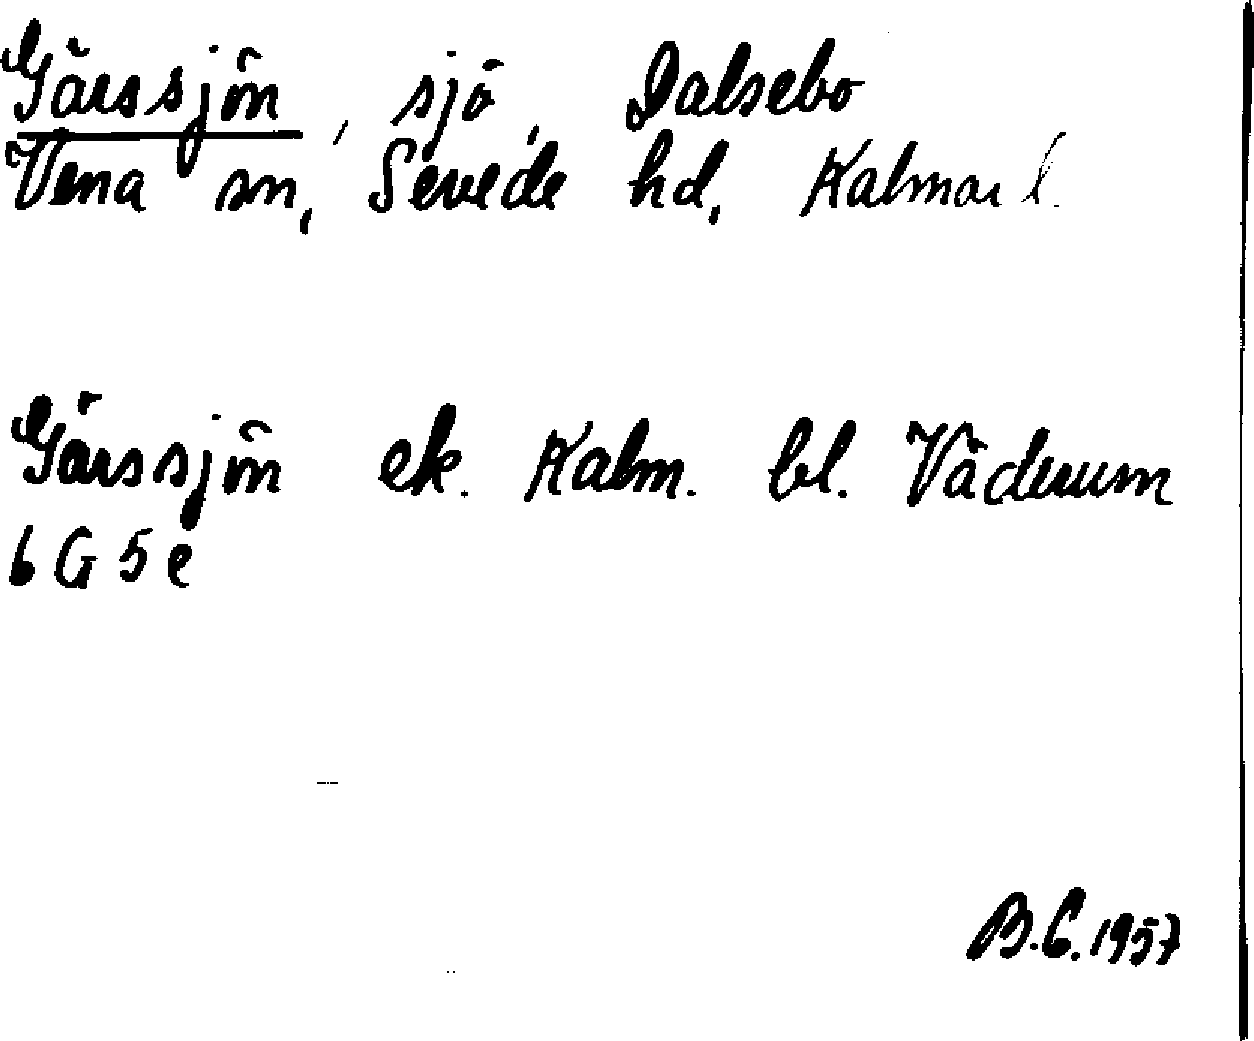 Gärssjön, sjö, Dalsebo
Vena sn, Sevede hd, Kalmar l.
Gärssjön ek. Kalm. bl. Väderum
6 G 5 e
B.C. 1957